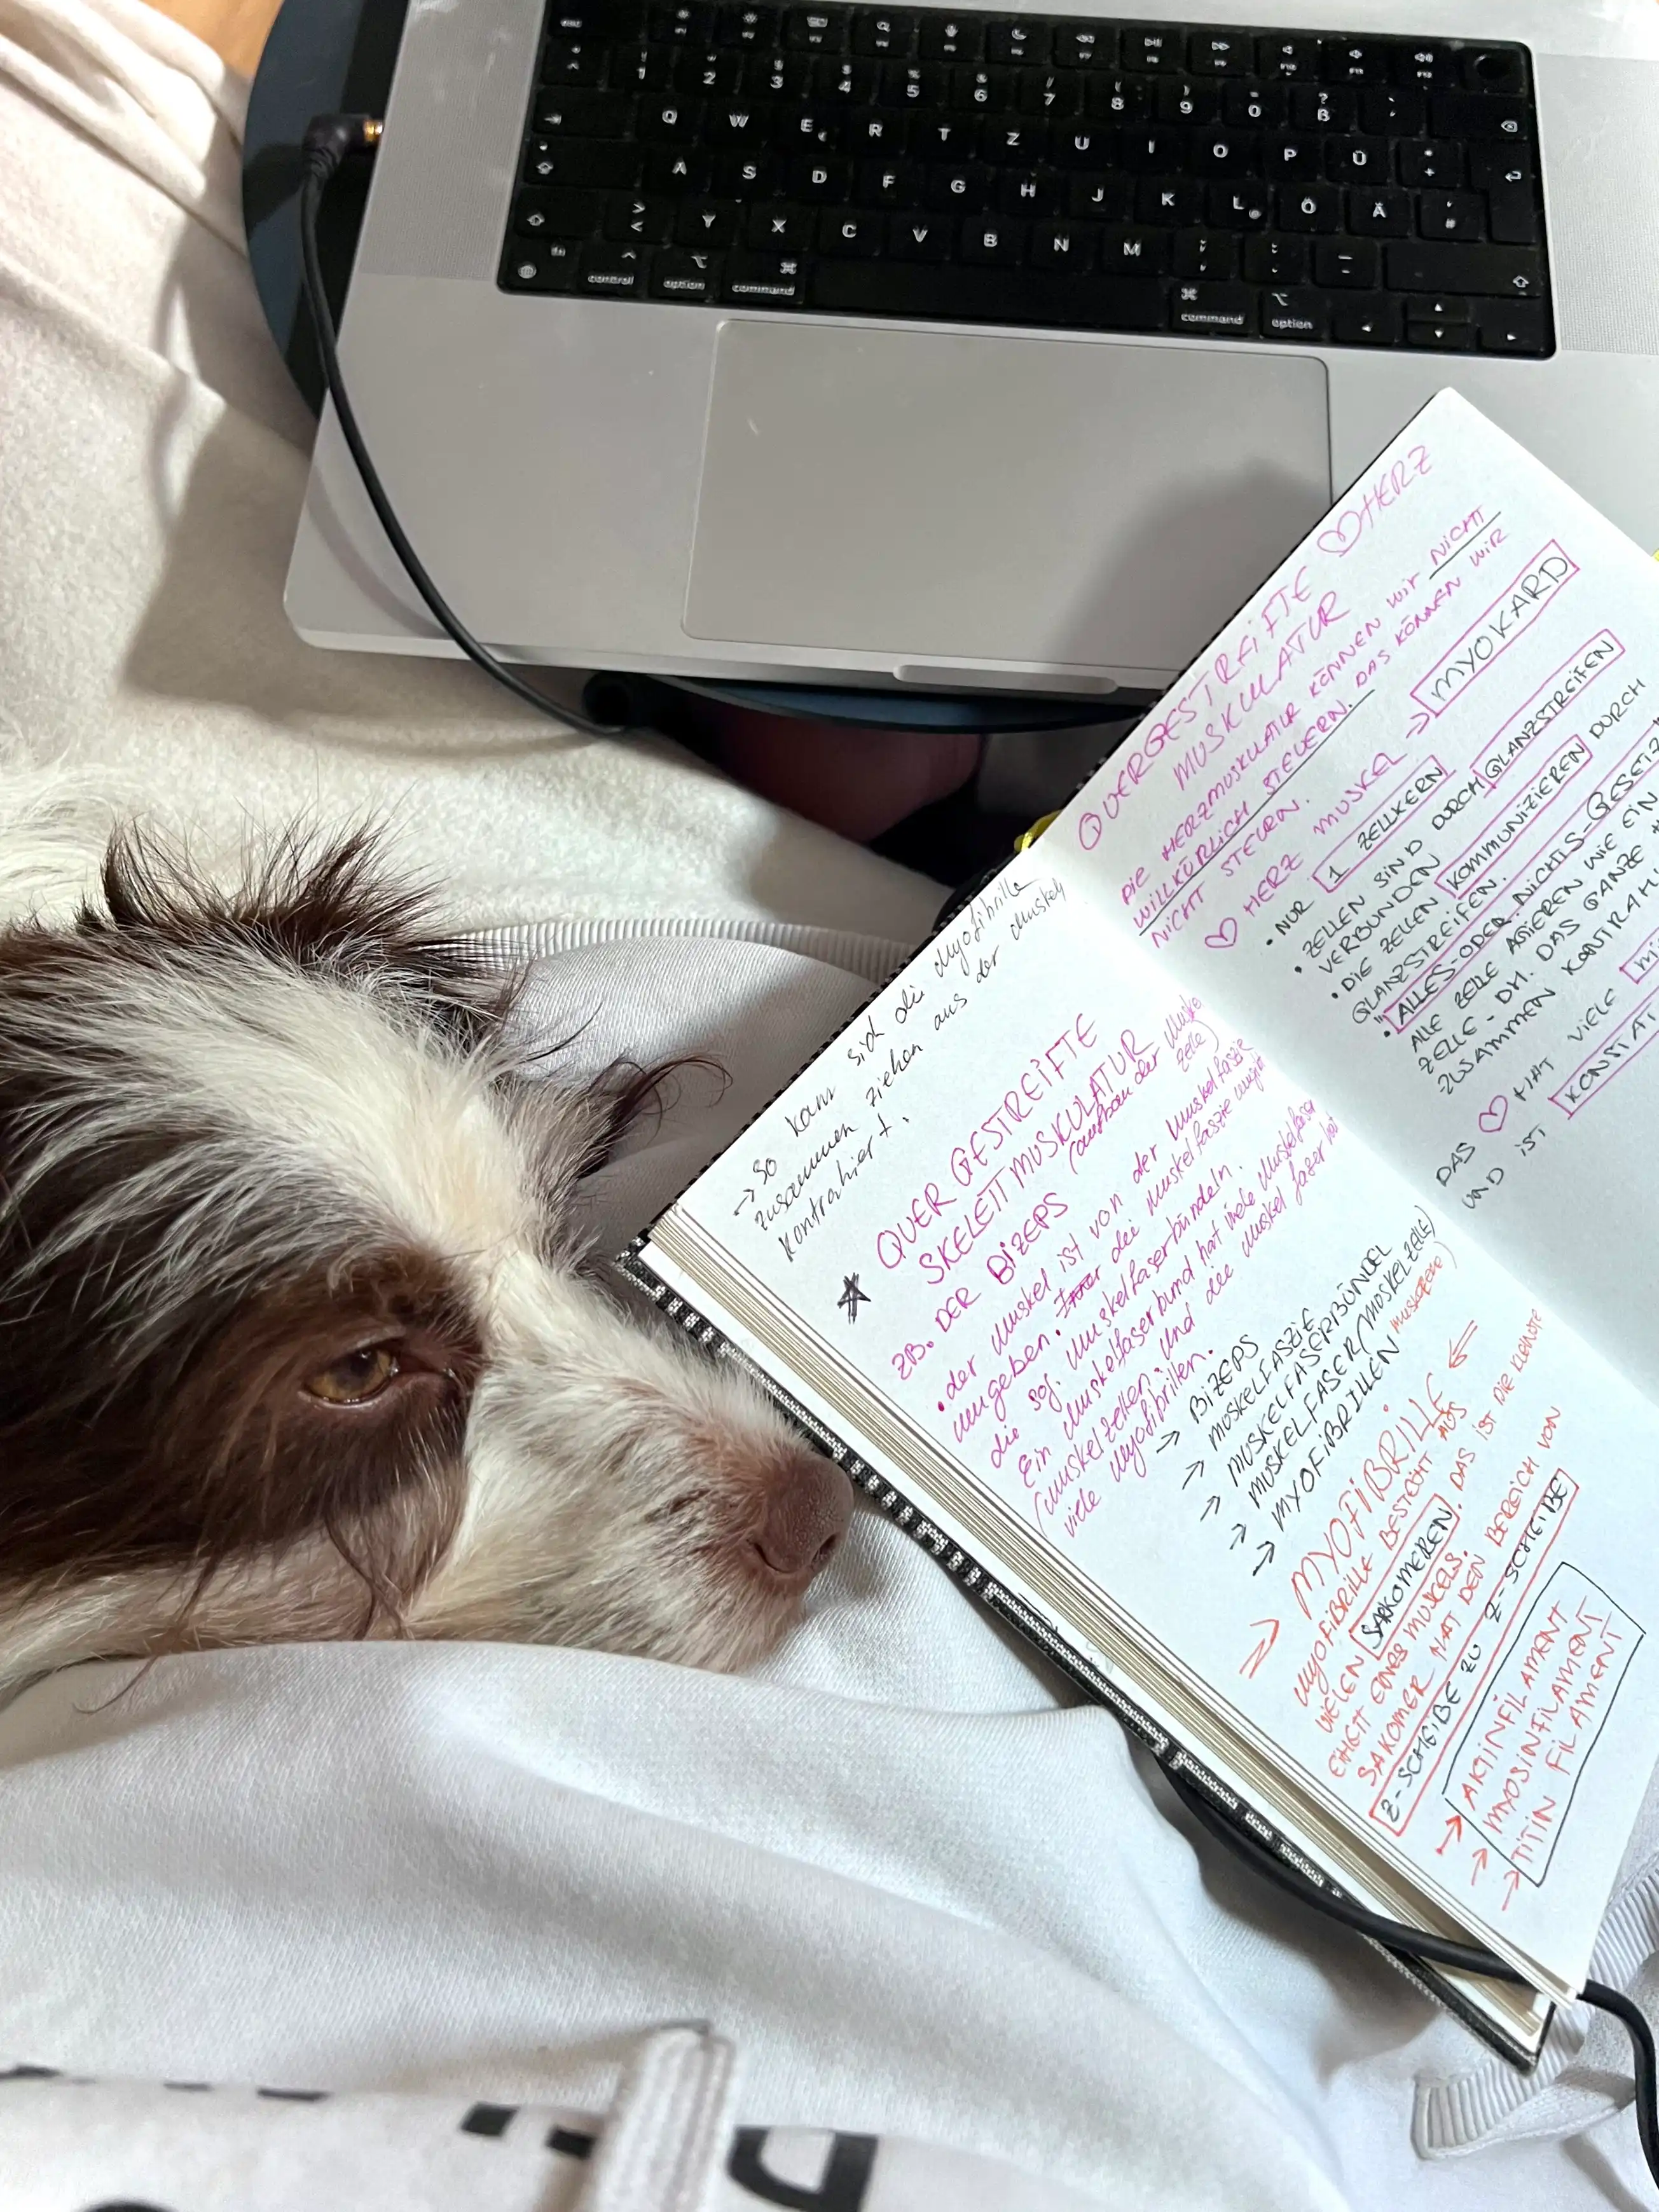 → So kann sich die Myofibrille
zusammen ziehen aus der Muskel
kontrahiert.
QUERGESTREIFTE
SKELETTMUSKULATUR
(aufbau der Muske
zelle)
ZB. DER BIZEPS
• der Muskel ist von der Muskelfaszie
umgeben. die Muskelfaszie umgibt
die sog. Muskelfaserbündeln.
Ein Muskelfaserbund hat viele Muskelfasen
(Muskelzellen. Und die Muskel faser hat
viele Myofibrillen.
→ BIZEPS
→ MUSKELFASZIE
→ MUSKELFASERBÜNDEL
→ MUSKELFASER/MUSKELZELLE)
→ MYOFIBRILLEN
MYOFIBRILLE ⇐
MYOFIBRILLE BESTEHT AUS
VIELEN SARKOMEREN. DAS IST DIE KLEINSTE
EIHEIT EINES MUSKELS.
SAKOMER HAT DEN BEREICH VON
Z-SCHEIBE ZU Z-SCHEIBE
→ AKTINFILAMENT
→ MYOSINFILAMENT
→ TITIN FILAMENT
QUERGESTREIFTE ♡HERZ
MUSKULATUR
DIE HERZMUSKULATUR KÖNNEN WIR NICHT
WILLKÜRLICH STEUERN. DAS KÖNNEN WIR
NICHT STEUERN.
♡ HERZ MUSKEL → MYOKARD
• NUR 1 ZELLKERN
• ZELLEN SIND DURCH GLANZSTREIFEN
VERBUNDEN
• DIE ZELLEN KOMMUNIZIEREN DURCH
GLANZSTREIFEN.
• "ALLES-ODER-NICHTS-GESETZ"
ALLE ZELLE AGIEREN WIE EIN
ZELLE - DH. DAS GANZE
ZUSAMMEN
DAS ♡ HAT VIELE
UND IST
esc
1 2 3 4 5 6 7 8 9 0 ß
Q W E R T Z U I O P Ü
A S D F G H J K L Ö Ä #
> < Y X C V B N M ; , : . _ -
fn control option command command option